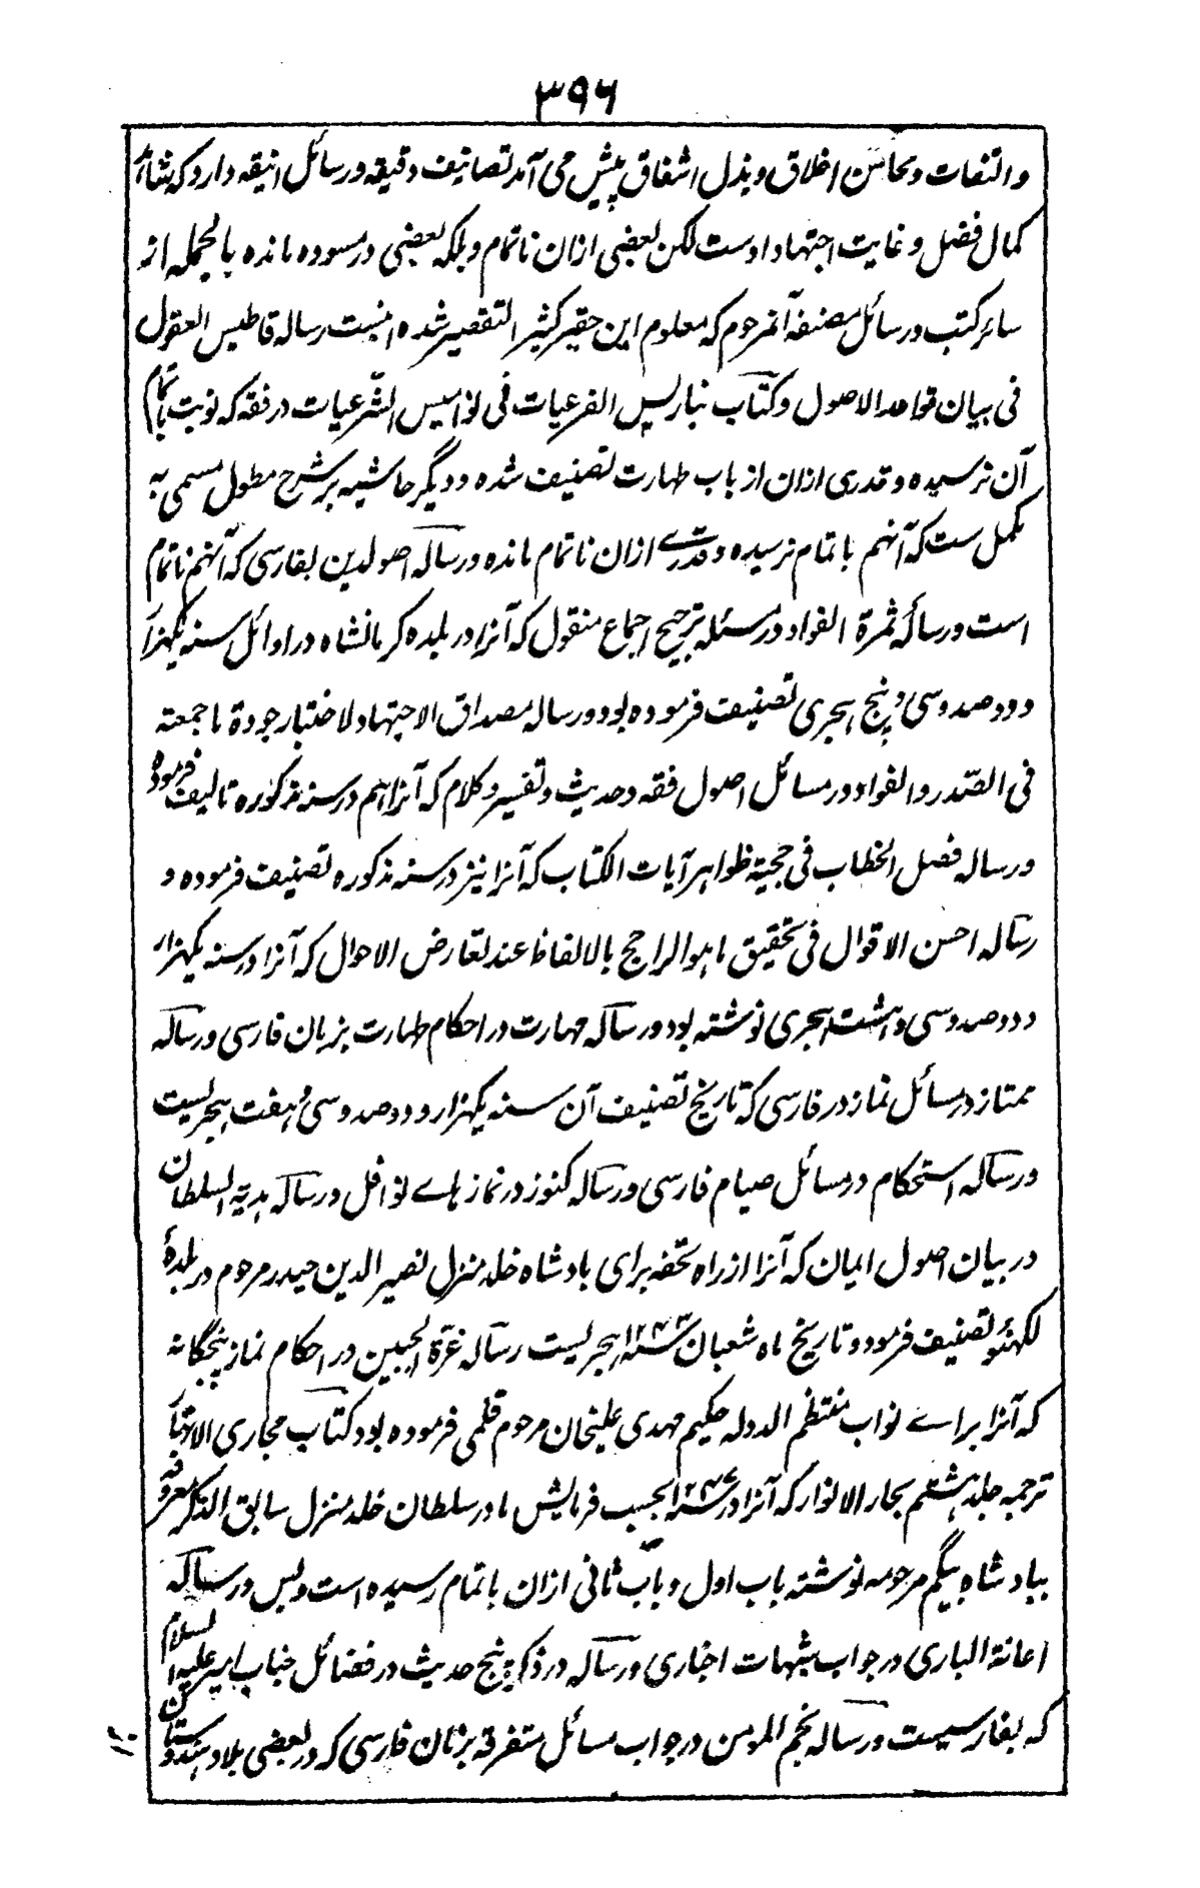 ۳۹۶
و التفات و محاسن اخلاق و بذل اشفاق پیش می آمد تصانیف دقیقه و رسائل انیقه دارد که شاهد
کمال فضل و غایت اجتهاد اوست لکن بعضی ازان ناتمام و بلکه بعضی در مسوده مانده بالجمله از
سائر کتب و رسائل مصنفه آنمرحوم که معلوم این حقیر کثیر التقصیر شده اینست رساله قاطیس العقول
فی بیان قواعد الاصول و کتاب نباریس الفرعیات فی نوامیس الشّرعیات در فقه که نوبت باتمام
آن نرسیده و قدری ازان از باب طهارت تصنیف شده و دیگر حاشیه بر شرح مطول مسمی به
مکمل ست که آنهم باتمام نرسیده و قدرے ازان ناتمام مانده و رساله اصولدین بفارسی که آنهم ناتمام
است و رسالهٔ ثمرة الفواد در مسئله ترجیح اجماع منقول که آنرا در بلده کرمانشاه در اوائل سنه یکهزار
و دو صد و سی و پنج هجری تصنیف فرموده بود و رساله مصداق الاجتهاد لاختبار جودة ما جمعته
فی الصّدر و الفواد در مسائل اصول فقه و حدیث و تفسیر و کلام که آنرا هم در سنه مذکوره تالیف فرموده
و رساله فصل الخطاب فی حجیة ظواهر آیات الکتاب که آنرا نیز در سنه مذکوره تصنیف فرموده و
رساله احسن الاقوال فی تحقیق ما هو الراجح بالالفاظ عند تعارض الاحوال که آنرا در سنه یکهزار
و دو صد و سی و هشت هجری نوشته بود و رساله مهارت در احکام طهارت بزبان فارسی و رساله
ممتاز در مسائل نماز در فارسی که تاریخ تصنیف آن سنه یکهزار و دو صد و سی و هفت هجریست
و رساله استحکام در مسائل صیام فارسی و رساله کنوز در نماز هاے نوافل و رساله هدیة السلطان
در بیان اصول ایمان که آنرا از راه تحفه برای بادشاه خلد منزل نصیر الدین حیدر مرحوم در بلدهٔ
لکهنؤ تصنیف فرمود و تاریخ ماه شعبان سنه ۱۲۴۳ هجریست رساله غرّة الجبین در احکام نماز پنجگانه
که آنرا براے نواب منتظم الدوله حکیم مهدی علیخان مرحوم قلمی فرموده بود کتاب مجاری الانهار
ترجمه جلد هشتم بحار الانوار که آنرا در سنه ۱۲۴۶ بحسب فرمایش مادر سلطان خلد منزل سابق الذکر معروفه
ببادشاه بیگم مرحومه نوشته باب اول و باب ثانی ازان باتمام رسیده است و بس و رساله
اعانة الباری در جواب شبهات اخباری و رساله در ذکر پنج حدیث در فضائل جناب امیر علیه السلام
که بفارسیست و رساله نجم المومن در جواب مسائل متفرقه بزبان فارسی که در بعضی بلاد هندوستان